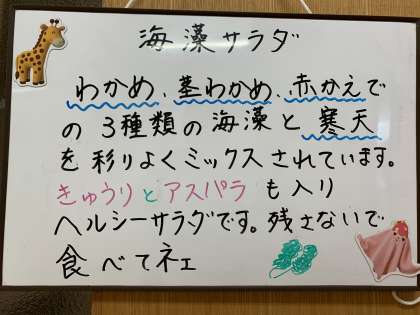 海藻サラダ
わかめ、茎わかめ、赤かえで
の3種類の海藻と寒天
を彩りよくミックスされています。
きゅうりとアスパラも入り
ヘルシーサラダです。残さないで
食べてネェ